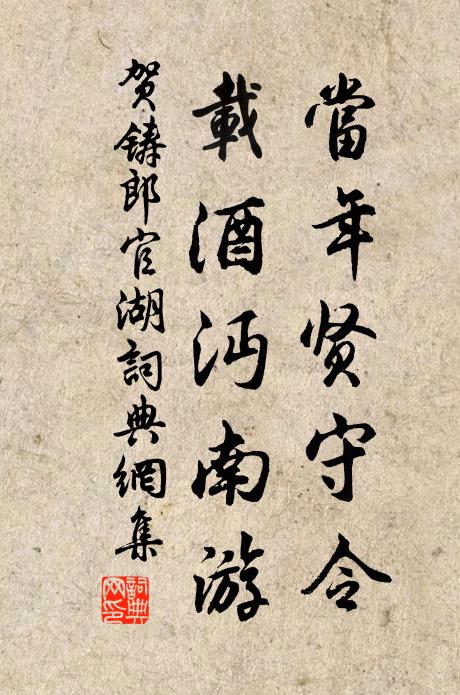 當年贤守令
載酒沔南游
贺鋳郎官湖詞典網集
詞典網印